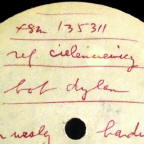 xsm 135311
ref cielencewicz
bob dylan
n wesley hardi